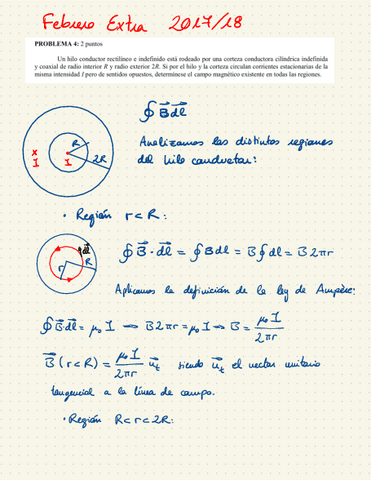 Febrero Extra 2017/18
PROBLEMA 4: 2 puntos
Un hilo conductor rectilíneo e indefinido está rodeado por una corteza conductora cilíndrica indefinida
y coaxial de radio interior R y radio exterior 2R. Si por el hilo y la corteza circulan corrientes estacionarias de la
misma intensidad I pero de sentidos opuestos, determínese el campo magnético existente en todas las regiones.
∮ B⃗ dl⃗
R
x
I
I
2R
Analizamos las distintas regiones
del hilo conductor:
• Región r<R:
dl⃗
R
r
∮ B⃗ · dl⃗ = ∮ B dl = B ∮ dl = B 2πr
Aplicamos la definición de la ley de Ampère:
∮ B⃗ dl⃗ = μ₀ I ⇒ B 2πr = μ₀ I ⇒ B = μ₀ I / 2πr
B⃗ (r<R) = μ₀ I / 2πr u⃗t siendo u⃗t el vector unitario
tangencial a la línea de campo.
• Región R<r<2R: